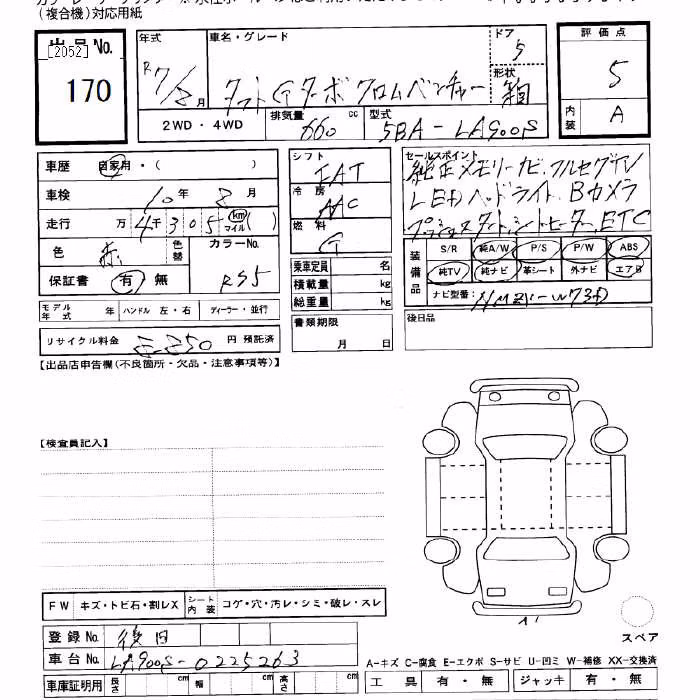 (複合機)対応用紙
出品No. 年式 車名・グレード ドア 評価点
[2052] R7/2月 タフト Gターボ クロムベンチャー 5 5
170 形状 箱
2WD・4WD 排気量 660 cc 型式 5BA-LA900S 内装 A
車歴 自家用・( ) シフト FAT セールスポイント
車検 10年 2月 冷房 AAC 純正メモリーナビ.フルセグTV
走行 万4千305 km マイル ( ) 燃料 G LEDヘッドライト.Bカメラ
色 赤 色替 カラーNo. シートヒーター.ETC
保証書 有 無 R55
乗車定員 名 装備品 S/R 純A/W P/S P/W ABS
積載量 kg 純TV 純ナビ 革シート 外ナビ エアB
総重量 kg ナビ型番:
モデル年式 年 ハンドル 左・右 ディーラー・並行 書類期限 月 日 後日品
リサイクル料金 円 預託済
【出品店申告欄(不良箇所・欠品・注意事項等)】
【検査員記入】
FW キズ・トビ石・割レX シート内装 コゲ・穴・汚レ・シミ・破レ・スレ
登録No. 後日 スペア
車台No. LA900S-0225263
A-キズ C-腐食 E-エクボ S-サビ U-凹ミ W-補修 XX-交換済
車庫証明用 長さ cm 幅 cm 高さ cm 工具 有・無 ジャッキ 有・無